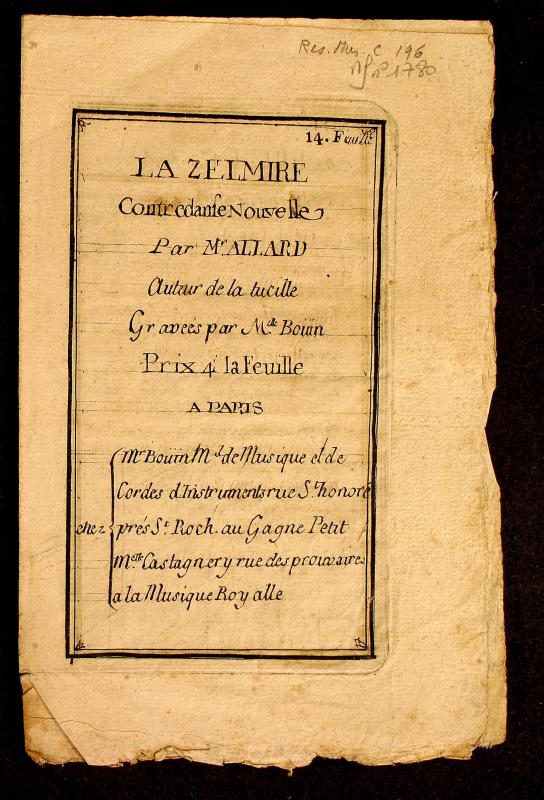 Res. Mus. C 196
nº 1780
14. Feuille
LA ZELMIRE
Contredanse Nouvelle
Par Mr. ALLARD
Auteur de la lucille
Graveés par Melle Boüin
Prix 4s la Feuille
A PARIS
chez
Mr Boüin Md de Musique et de
Cordes d'Instruments rue St. honoré
prés St. Roch. au Gagne Petit
Melle Castagnery rue des prouvaires
a la Musique Royalle